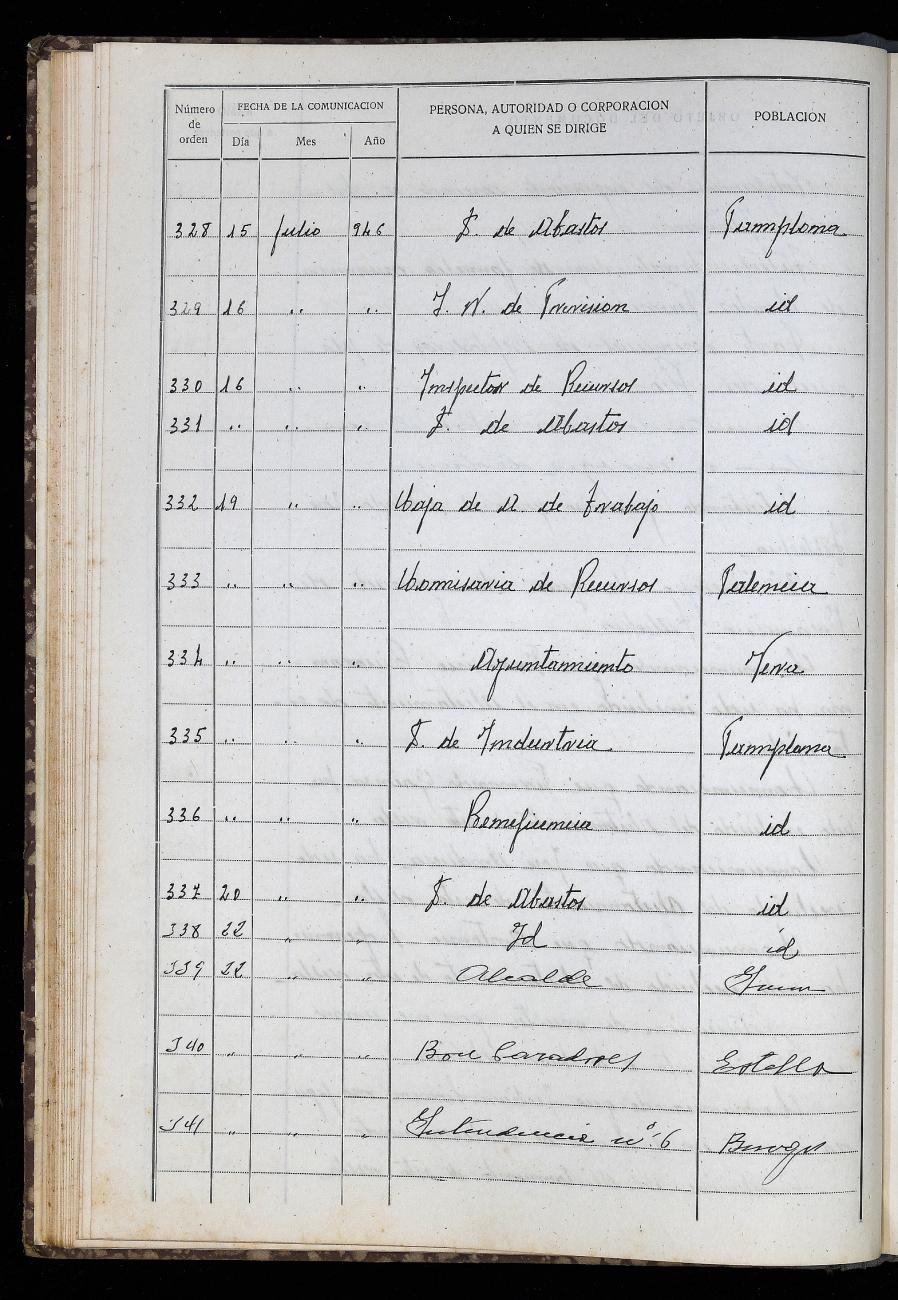 Número de orden FECHA DE LA COMUNICACION PERSONA, AUTORIDAD O CORPORACION A QUIEN SE DIRIGE POBLACION
Día Mes Año
328 15 Julio 946 D. de Abastos Pamplona
329 16 " " I. N. de Prevision id
330 16 " " Inspector de Recursos id
331 " " " D. de Abastos id
332 19 " " Caja de A. de Trabajo id
333 " " " Comisaria de Recursos Palencia
334 " " " Ayuntamiento Vera
335 " " " D. de Industria Pamplona
336 " " " Beneficencia id
337 20 " " D. de Abastos id
338 22 " " Id id
339 22 " " Alcalde
340 " " " Bon Cazadores Estella
341 " " " Intendencia nº 6 Burgos